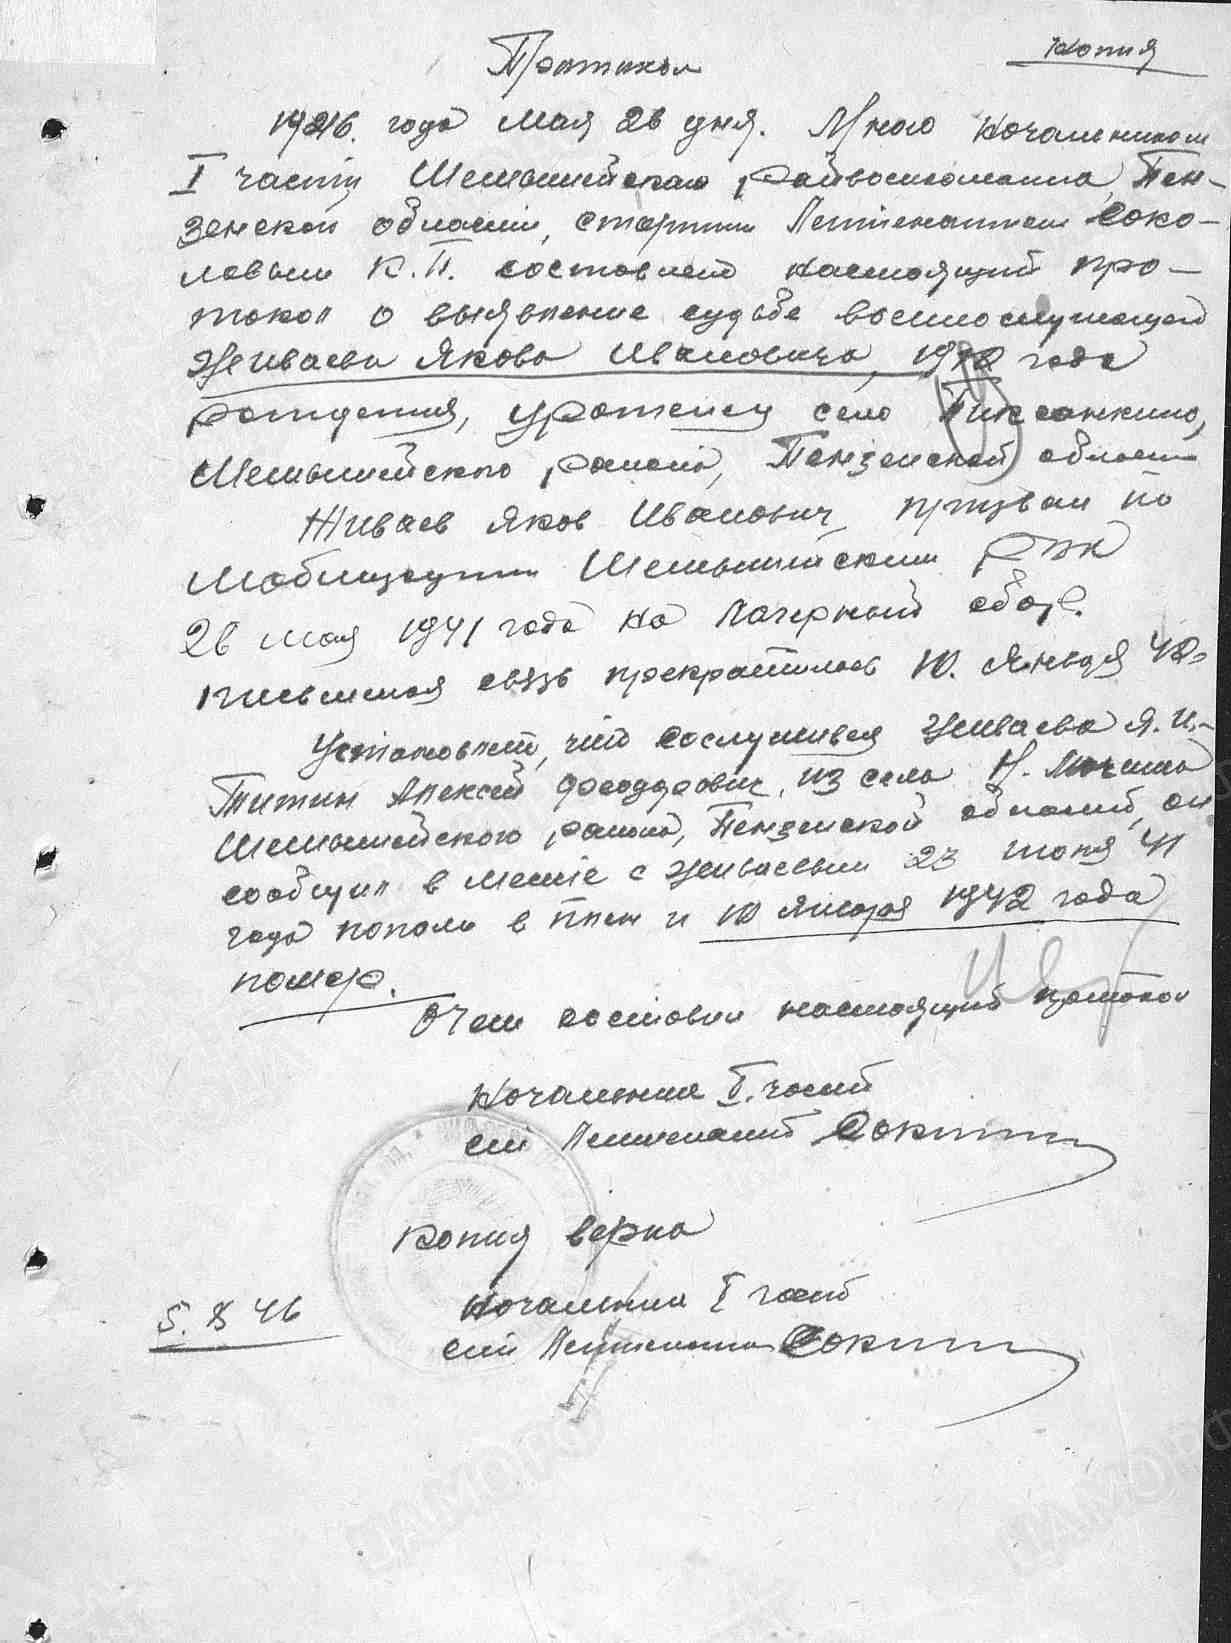 Копия
Протокол
1946 года мая 26 дня. Мною Начальником
I части Шемышейского райвоенкомата, Пен-
зенской области, старшим Лейтенантом Соко-
ловым К. П. составлен настоящий про-
токол о выявление судьбе военнослужащего
Живаева Якова Ивановича, года
рождения, уроженец село Пиксанкино,
Шемышейского района, Пензенской области
Живаев Яков Иванович призван по
мобилизации Шемышейским РВК
26 мая 1941 года на Лагерный сбор.
письменная связь прекратилась 10. Января 42
Установлено, что сослужився Живаева Я. И.-
Титин Алексей Феоддрович, из села Н. Мачима
Шемышейского района, Пензенской области, он
сообщил в месте с Живаевым 23 июня 41
года попали в плен и 10 января 1942 года
помер.
О чем составлен настоящий протокол
Начальник I. части
ст Лейтенант
Копия верна
Начальник I части
5. 46
ст Лейтенант